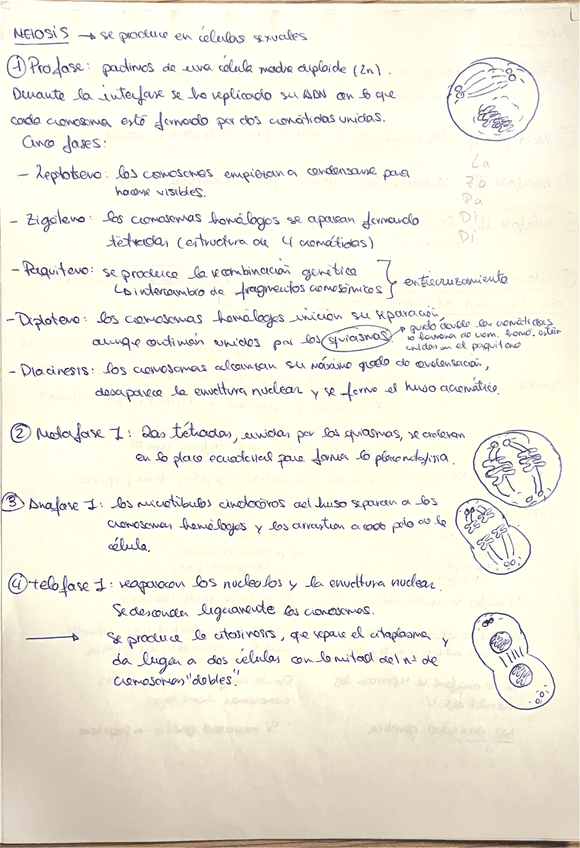 MEIOSIS → se produce en células sexuales
① Profase: partimos de una célula madre diploide (2n).
Durante la interfase se ha replicado su ADN con lo que
cada cromosoma está formado por dos cromátidas unidas.
Cinco fases:
- Leptoteno: los cromosomas empiezan a condensarse para
hacerse visibles.
- Zigoteno: los cromosomas homólogos se aparean formando
tétradas (estructura de 4 cromátidas)
- Paquiteno: se produce la recombinación genética
↳ intercambio de fragmentos cromosómicos } entrecruzamiento
- Diploteno: los cromosomas homólogos inician su separación,
aunque continúan unidos por los quiasmas
→ punto donde las cromátidas
hermana de crom. homo. están
unidas en el paquiteno
- Diacinesis: los cromosomas alcanzan su máximo grado de condensación,
desaparece la envoltura nuclear y se forma el huso acromático.
Le
Zi
Pa
Di
Di
② Metafase I: Las tétradas, unidas por los quiasmas, se colocan
en la placa ecuatorial para formar la placa metafásica.
③ Anafase I: los microtúbulos cinetocóricos del huso separan a los
cromosomas homólogos y los arrastran a cada polo de la
célula.
④ Telofase I: reaparecen los nucleolos y la envoltura nuclear.
Se descondensan ligeramente los cromosomas.
→ Se produce la citocinesis, que separa el citoplasma y
da lugar a dos células con la mitad del nº de
cromosomas "dobles".